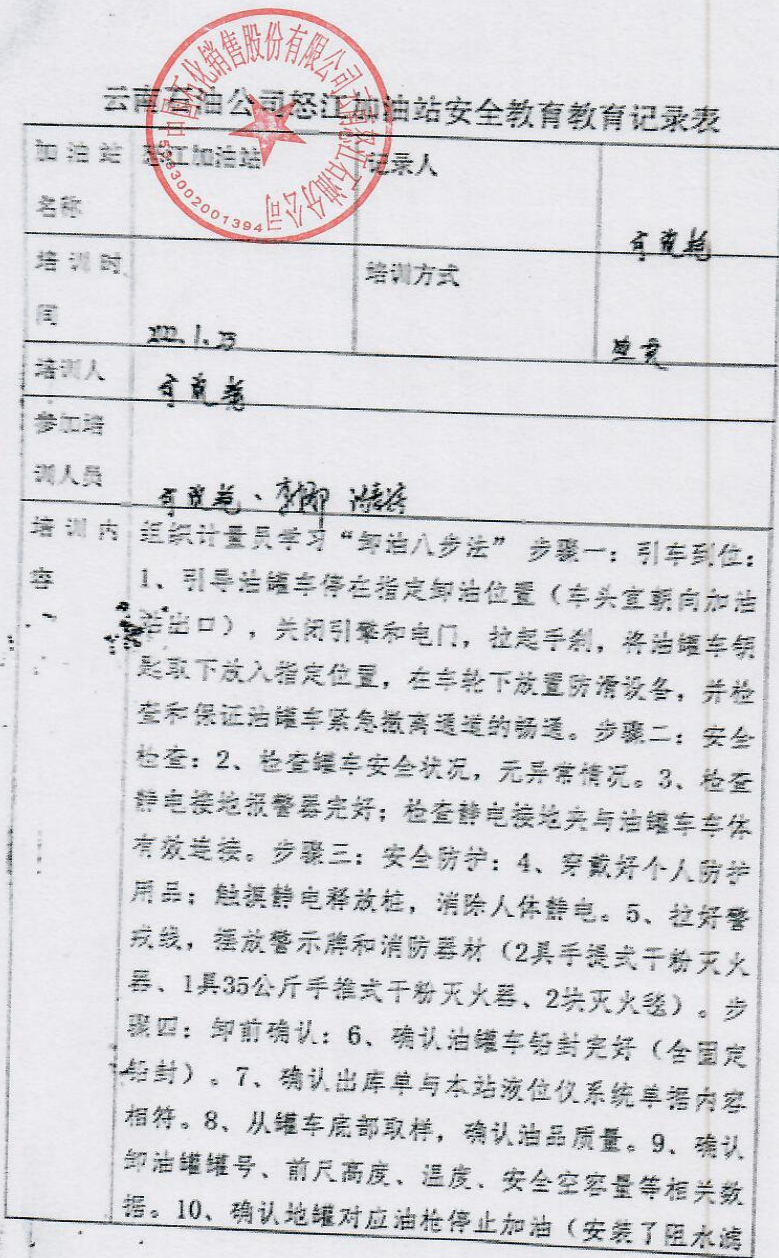 云南石油公司怒江加油站安全教育教育记录表
中国石化销售股份有限公司云南怒江石油分公司
5333002001394
加油站 怒江加油站 记录人
名称
培训时 培训方式
间
2022.1.23
培训人
参加培
训人员
培训内 组织计量员学习“卸油八步法” 步骤一：引车到位：
容 1、引导油罐车停在指定卸油位置（车头宜朝向加油
站出口），关闭引擎和电门，拉起手刹，将油罐车钥
匙取下放入指定位置，在车轮下放置防滑设备，并检
查和保证油罐车紧急撤离通道的畅通。步骤二：安全
检查：2、检查罐车安全状况，无异常情况。3、检查
静电接地报警器完好；检查静电接地夹与油罐车车体
有效连接。步骤三：安全防护：4、穿戴好个人防护
用品；触摸静电释放桩，消除人体静电。5、拉好警
戒线，摆放警示牌和消防器材（2具手提式干粉灭火
器、1具35公斤手推式干粉灭火器、2块灭火毯）。步
骤四：卸前确认：6、确认油罐车铅封完好（含固定
铅封）。7、确认出库单与本站液位仪系统单据内容
相符。8、从罐车底部取样，确认油品质量。9、确认
卸油罐罐号、前尺高度、温度、安全空容量等相关数
据。10、确认地罐对应油枪停止加油（安装了阻水滤